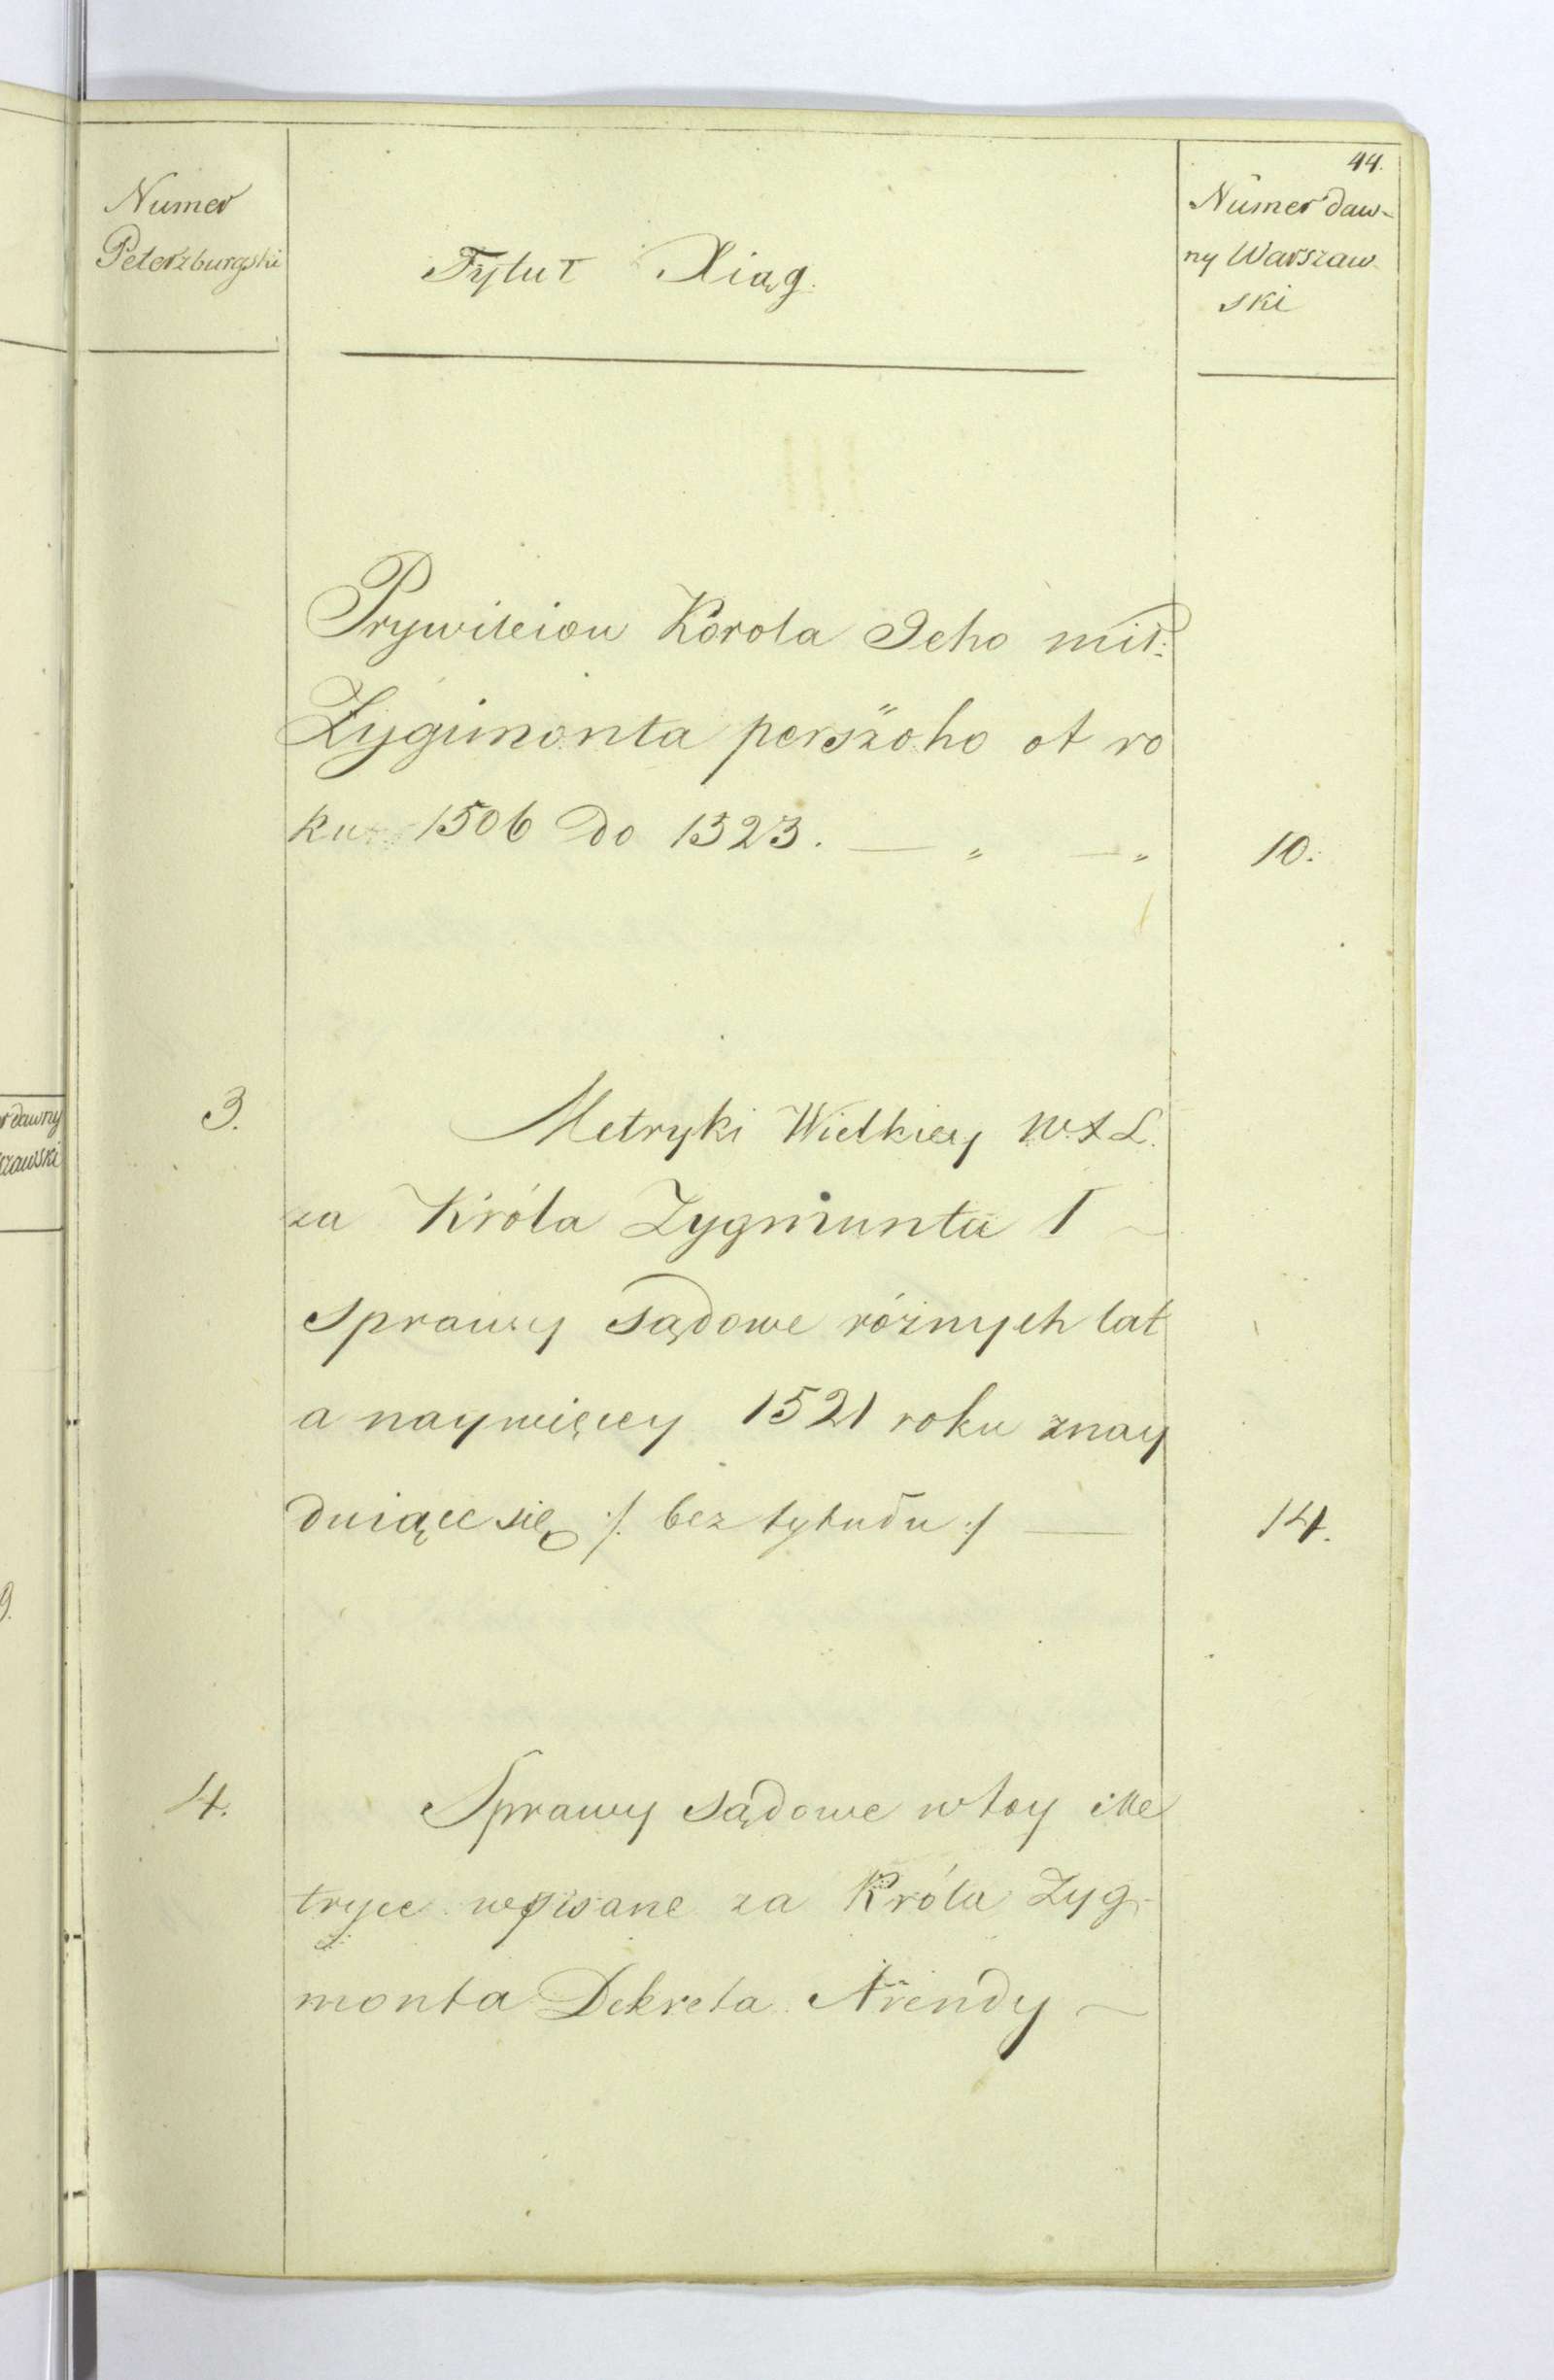 44.
Numer
Peterzburgski
Tytuł Xiąg.
Numer daw-
ny Warszaw
ski
Prywileiow Korola Jeho mił:
Zygimonta perszoho ot ro
ku 1506 do 1523. — " — "
10.
3.
Metryki Wielkiey W. X L.
za Króla Zygmunta I
sprawy sądowe różnych lat
a naywięcey 1521 roku znay
duiące się ./. bez tytułu ./. —
14.
4.
Sprawy sądowe w tey Me
tryce wpisane za Króla Zyg-
monta Dekreta Arendy —
r dawny
szawski
9.